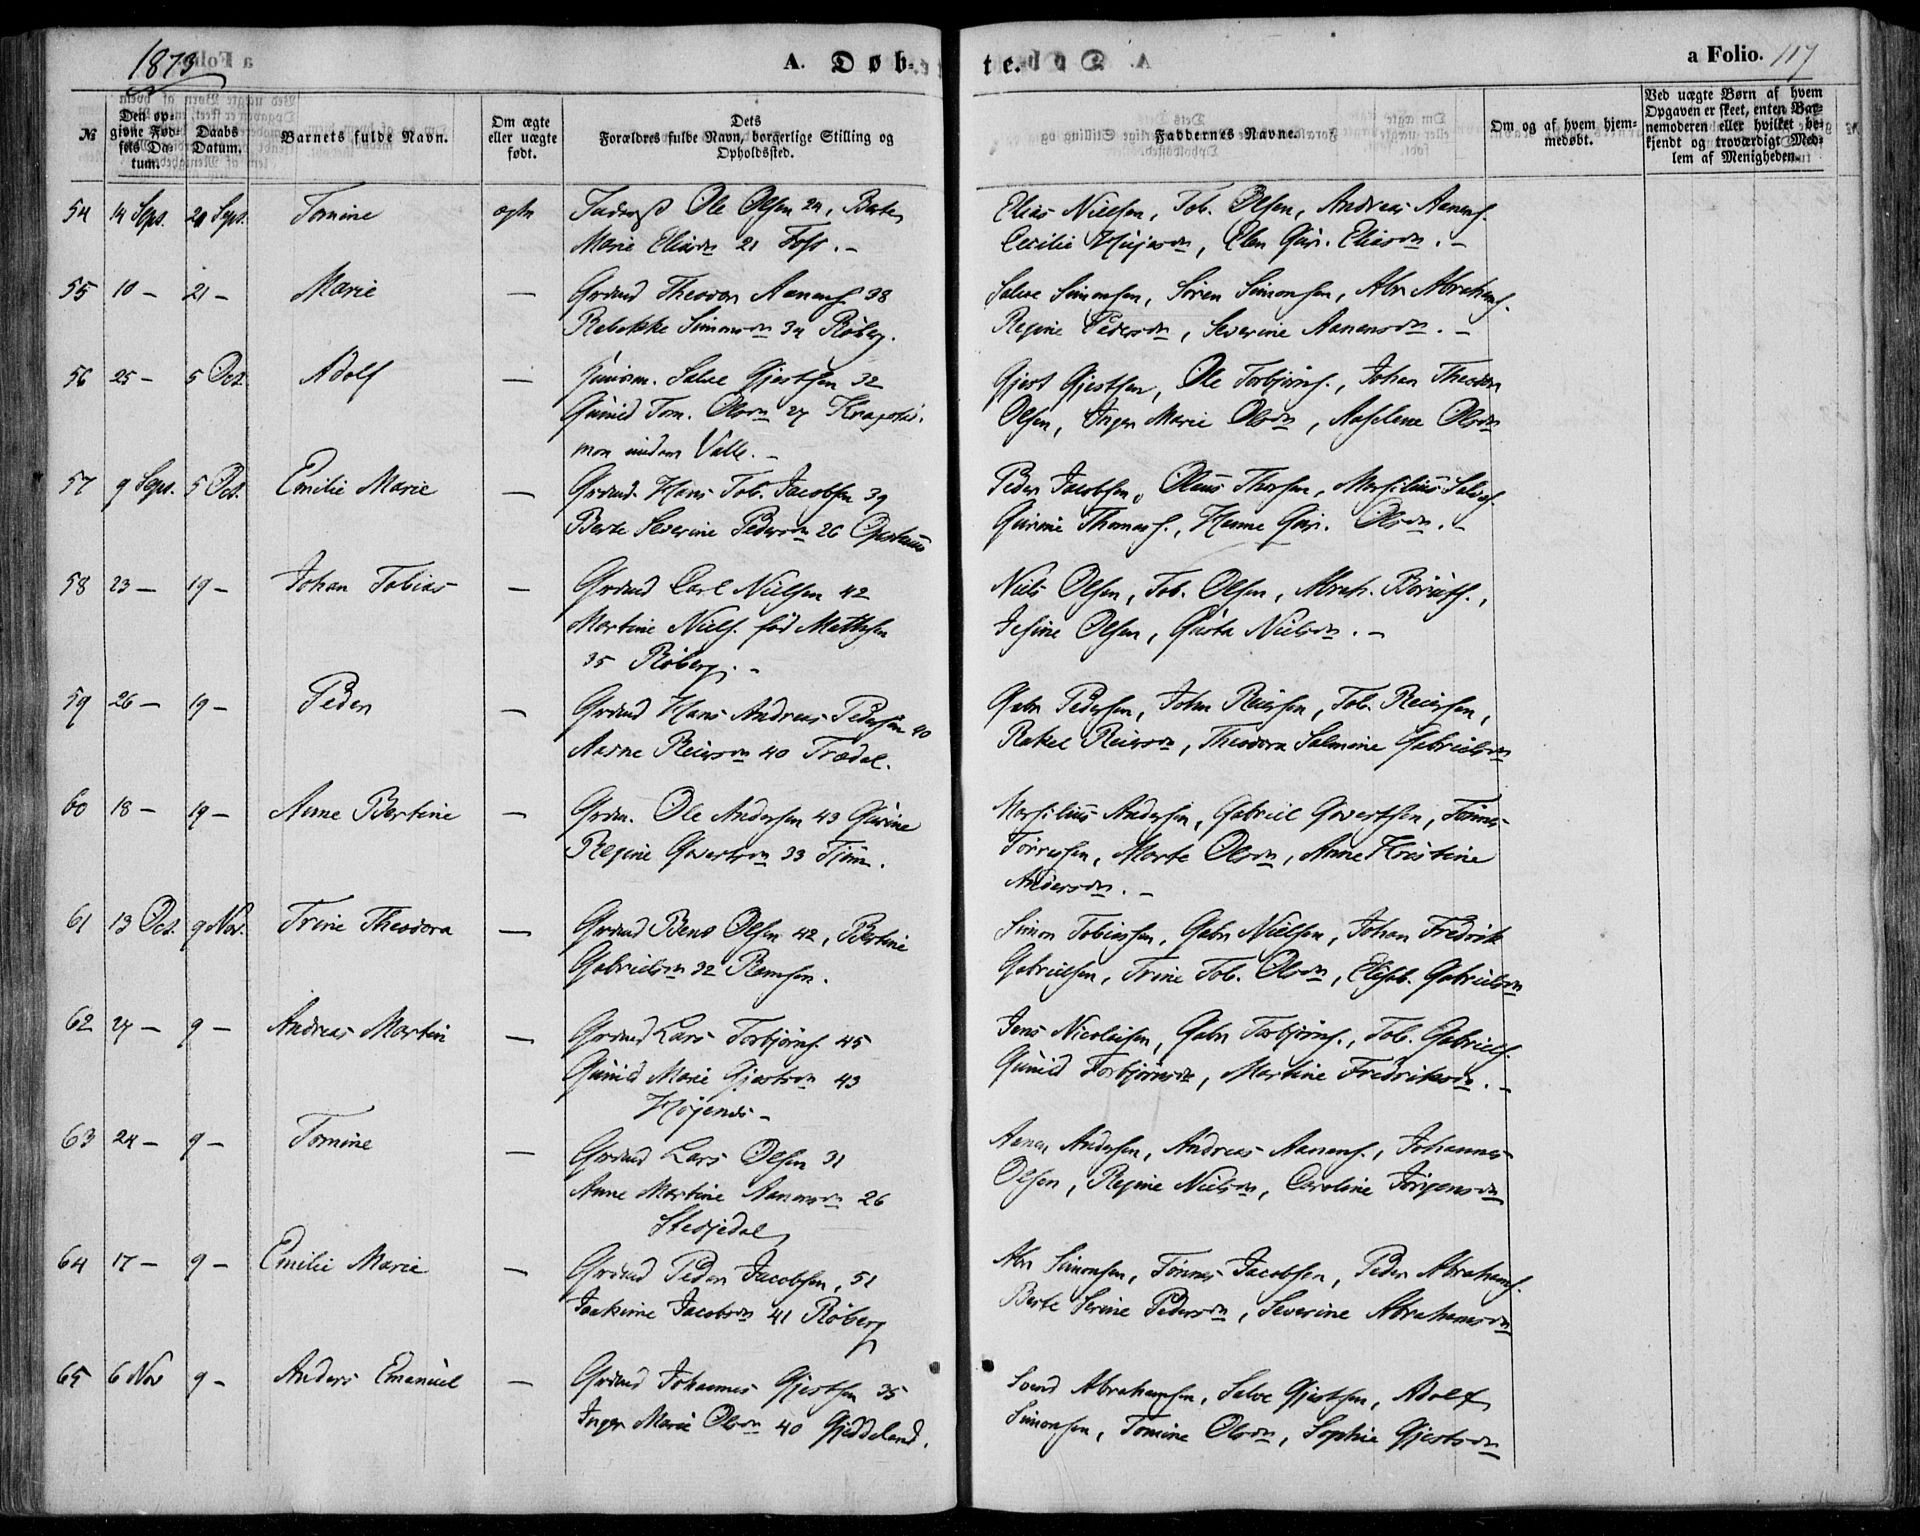 1873
A. Døb-
te.
a Folio. 117
№
Den op-
givne Fød-
sels Da-
tum.
Daabs
Datum.
Barnets fulde Navn.
Om ægte
eller uægte
født.
Dets
Forældres fulde Navn, borgerlige Stilling og
Opholdssted.
Faddernes Navne.
Om og af hvem hjem-
medøbt.
Ved uægte Børn af hvem
Opgaven er skeet, enten Bar-
nemoderen eller hvilket be-
kjendt og troværdigt Med-
lem af Menigheden.
54 14 Sept. 21 Sept. Tomine ægte Ole Olsen 24, Berte
Marie 21 Foss. -
Elias Nielsen, Tob. Olsen, Andreas Aanens.
Cecilie, Elen Gur. Eliasdn. -
55 10 - 21 - Marie - Grdmd Theodor Aanens. 38
Rebekke Simonsdn 34 Røberg.
Salve Simonsen, Søren Simonsen, Abr Abrahams.
Regine Pedersdn, Severine Aanensdn. -
56 25 - 5 Oct. Adolf - Huusm. Salve Gjertsen 32
Gunild Tom. Olsdn 27
under Valle. -
Gjert Gjertsen, Ole Torbjørns., Johan Theodor
Olsen, Inger Marie Olsdn, Olsdn
57 9 Sept. 5 Oct. Emilie Marie - Grdmd. Hans Tob. Jacobsen 39
Berte Severine Pedersdn 26
Peder Jacobsen, Olaus Thorsen, Marsilius Salves.
Gurine Thomass., Hanne Gur. Olsdn. -
58 23 - 19 - Johan Tobias - Grdmd Carl Nielsen 42
Martine Niels. fød Mathisen
35 Røberg. -
Niels Olsen, Tob. Olsen, Abrah.,
Jesine Olsen, Gusta Nielsdn. -
59 26 - 19 - Peder - Grdmd Hans Andreas Pedersen 40
Aasne Reiersdn 40 Trædal.
Gabr Pedersen, John Reiersen, Tob. Reiersen,
Rakel Reiersdn, Theodora Salmine Gabrielsdn
60 18 - 19 - Anne Bertine - Grdm. Ole Andersen 43 Gurine
Regine Govertsdn 33 Tjøm.
Marsilius Andersen, Gabriel Govertsen, Tønnes
Tørresen, Marte Olsdn, Anne Kristine
Andersdn. -
61 13 Oct. 9 Nov. Trine Theodora - Grdmd Bent Olsen 42, Bertine
Gabrielsdn 32 Ramsen.
Simon Tobiassen, Gabr Nielsen, Johan Fredrik
Gabrielsen, Trine Tob. Olsdn, Elisab. Gabrielsdn
62 27 - 9 - Andreas Martin - Grdmd Lars Torbjørns. 45
Gunild Marie Gjertsdn 43
Højende -
Jens Nicolaisen, Gabr Torbjørns., Tob. Gabriels.
Gunild Torbjørnsdn, Martine Fredriksdn. -
63 24 - 9 - Tomine - Grdmd Lars Olsen 31
Anne Martine Aanensdn 26
Stedjedal
Aanen Andersen, Andreas Aanens., Johannes
Olsen, Regine Nielsdn, Caroline Jörgensdn
64 17 - 9 - Emilie Marie - Grdmd Peder Jacobsen, 51
Joakime Jacobsdn 41 Røberg
Abr Simonsen, Tønnes Jacobsen, Peder Abrahams.
Berte Serine Pedersdn, Severine Abrahamsdn
65 6 Nov 9 - Anders Emanuel - Grdmd Johannes Gjertsen 35
Inger Marie Olsdn 40 Gjeddeland.
Svend Abrahamsen, Salve Gjertsen, Adolf
Simonsen, Tomine Olsdn, Sophie Gjertsdn